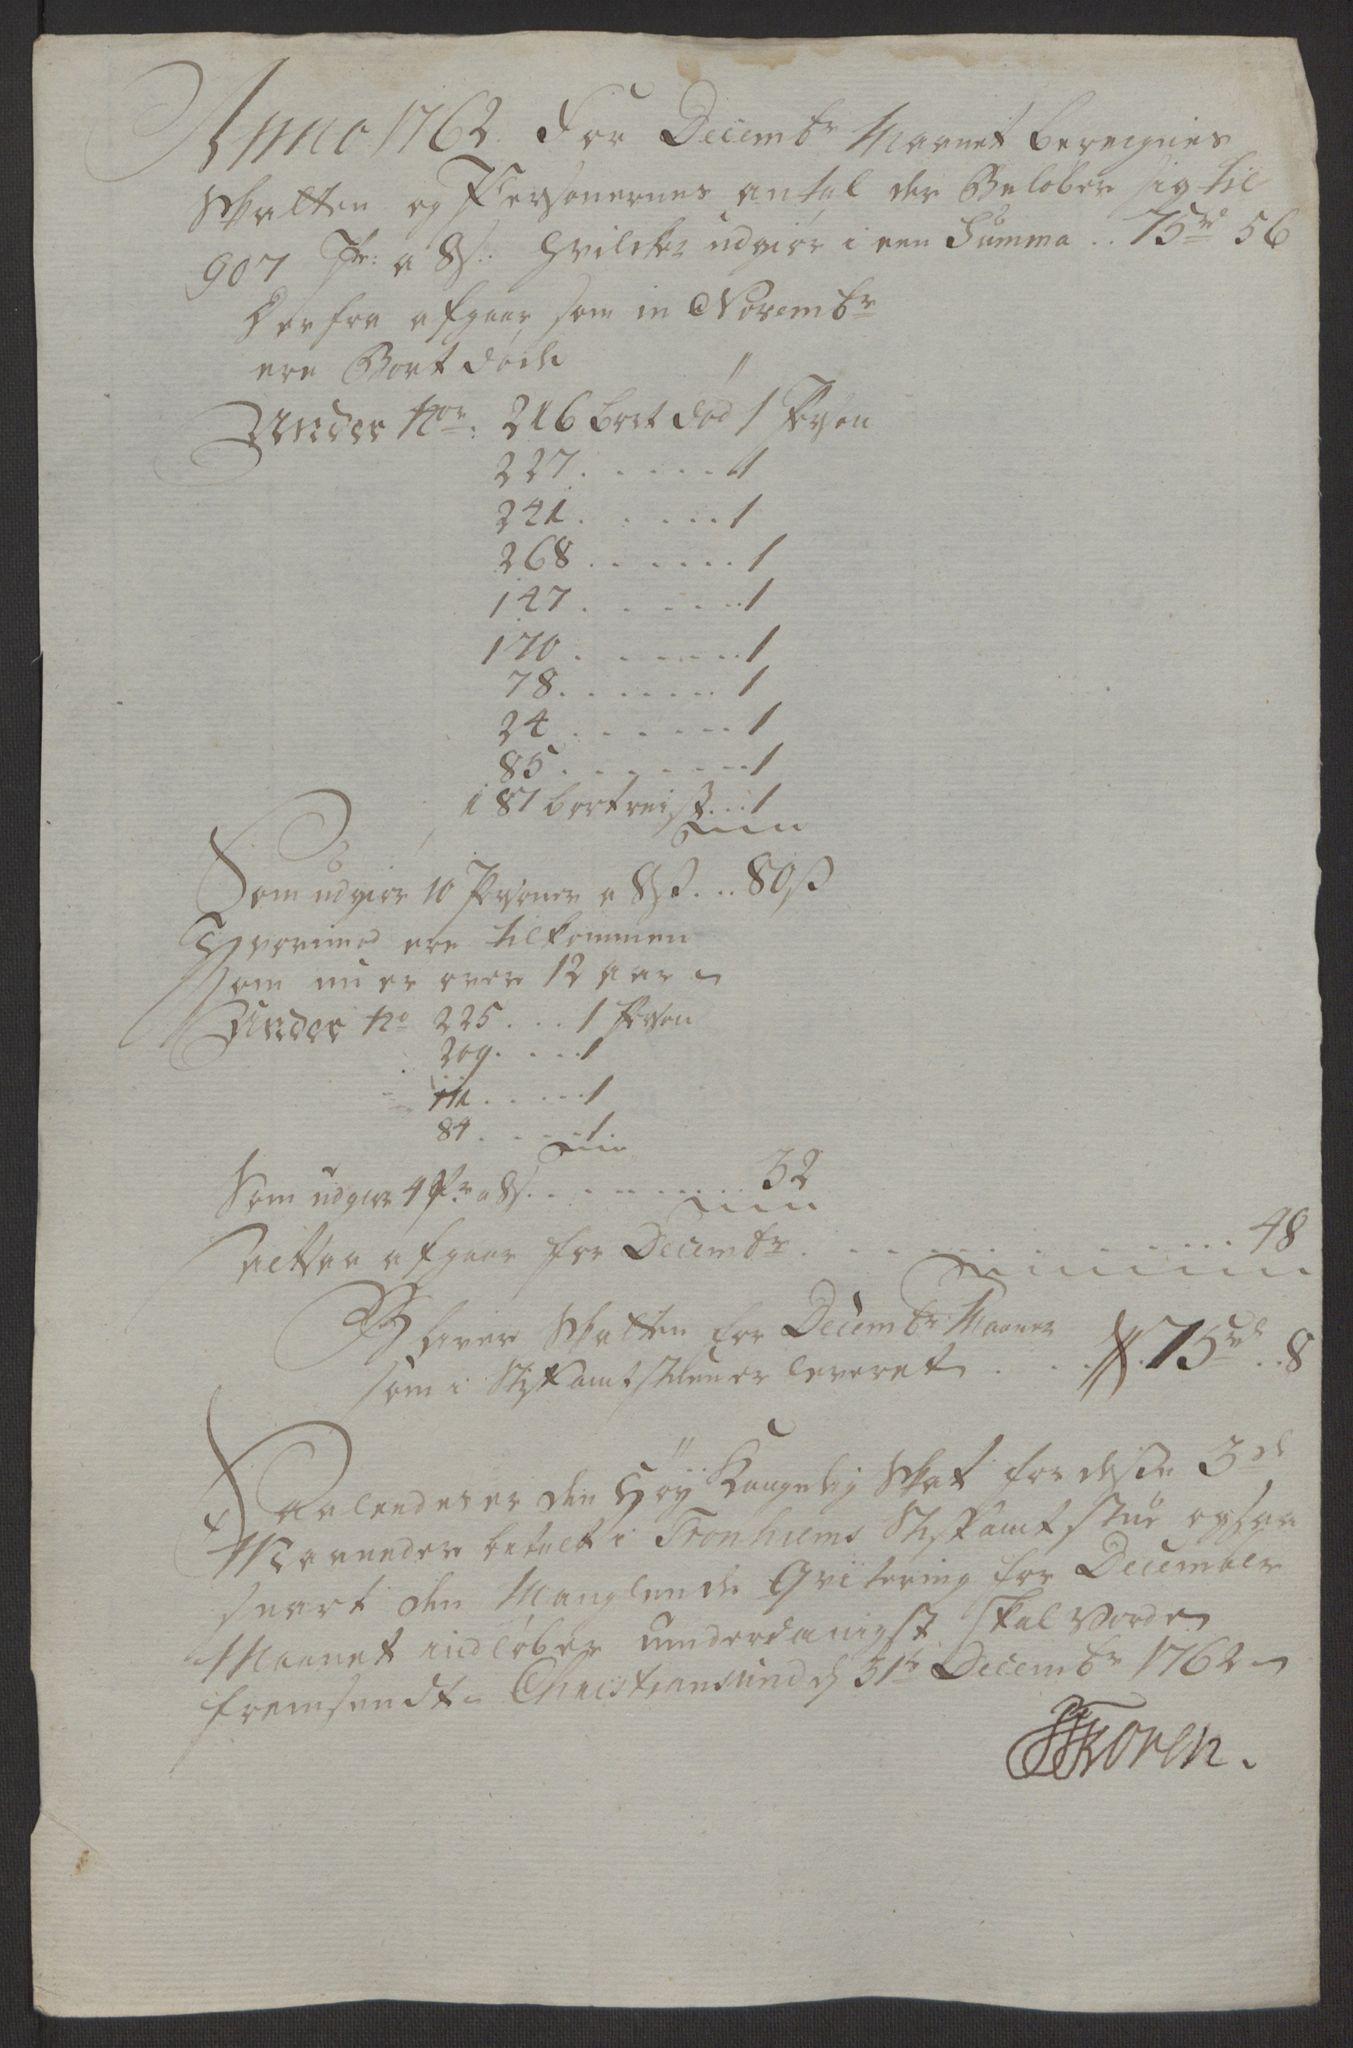 Anno 1762. For Decembr Maanet beregnes
Skatten og Personernes antal der Beløber sig til
907 Pr: a 8 s. hvilket udgiør i een Summa .. 75 rd 56
Herfra afgaar som in Novembr
ere Bort døde
Under No: 216 bort død 1 Person
227 . . . . . . 1
241 . . . . . . 1
268 . . . . . . 1
147 . . . . . . 1
170 . . . . . . 1
78 . . . . . . 1
24 . . . . . . 1
85 . . . . . . 1
187 bortreist . . . 1
Som udgiør 10 Personer a 8 s . . . 80 s
Hvorimod ere tilkommen
som nu er over 12 aar
Under No 225 . . . 1 Person
209 . . . . 1
111 . . . . . 1
84 . . . . . 1
Som udgiør 4 Pr a 8 s. . . . . . . . 32
altsaa afgaar for Decembr . . . . . . . . . . . . 48
Bliver Skatten for Decembr Maaned
som i Stiftamtstuen er leveret . . . . 75 rd . . 8
Saaledes er den Høy Kongelig Skat for disse 3de
Maaneder betalt i Tronhiems Stiftamtstue og saa
snart den Manglende Qvitering for December
Maanet indløber underdanigst skal vorde
fremsendt. Christiansund d 31te Decembr 1762
Koren.